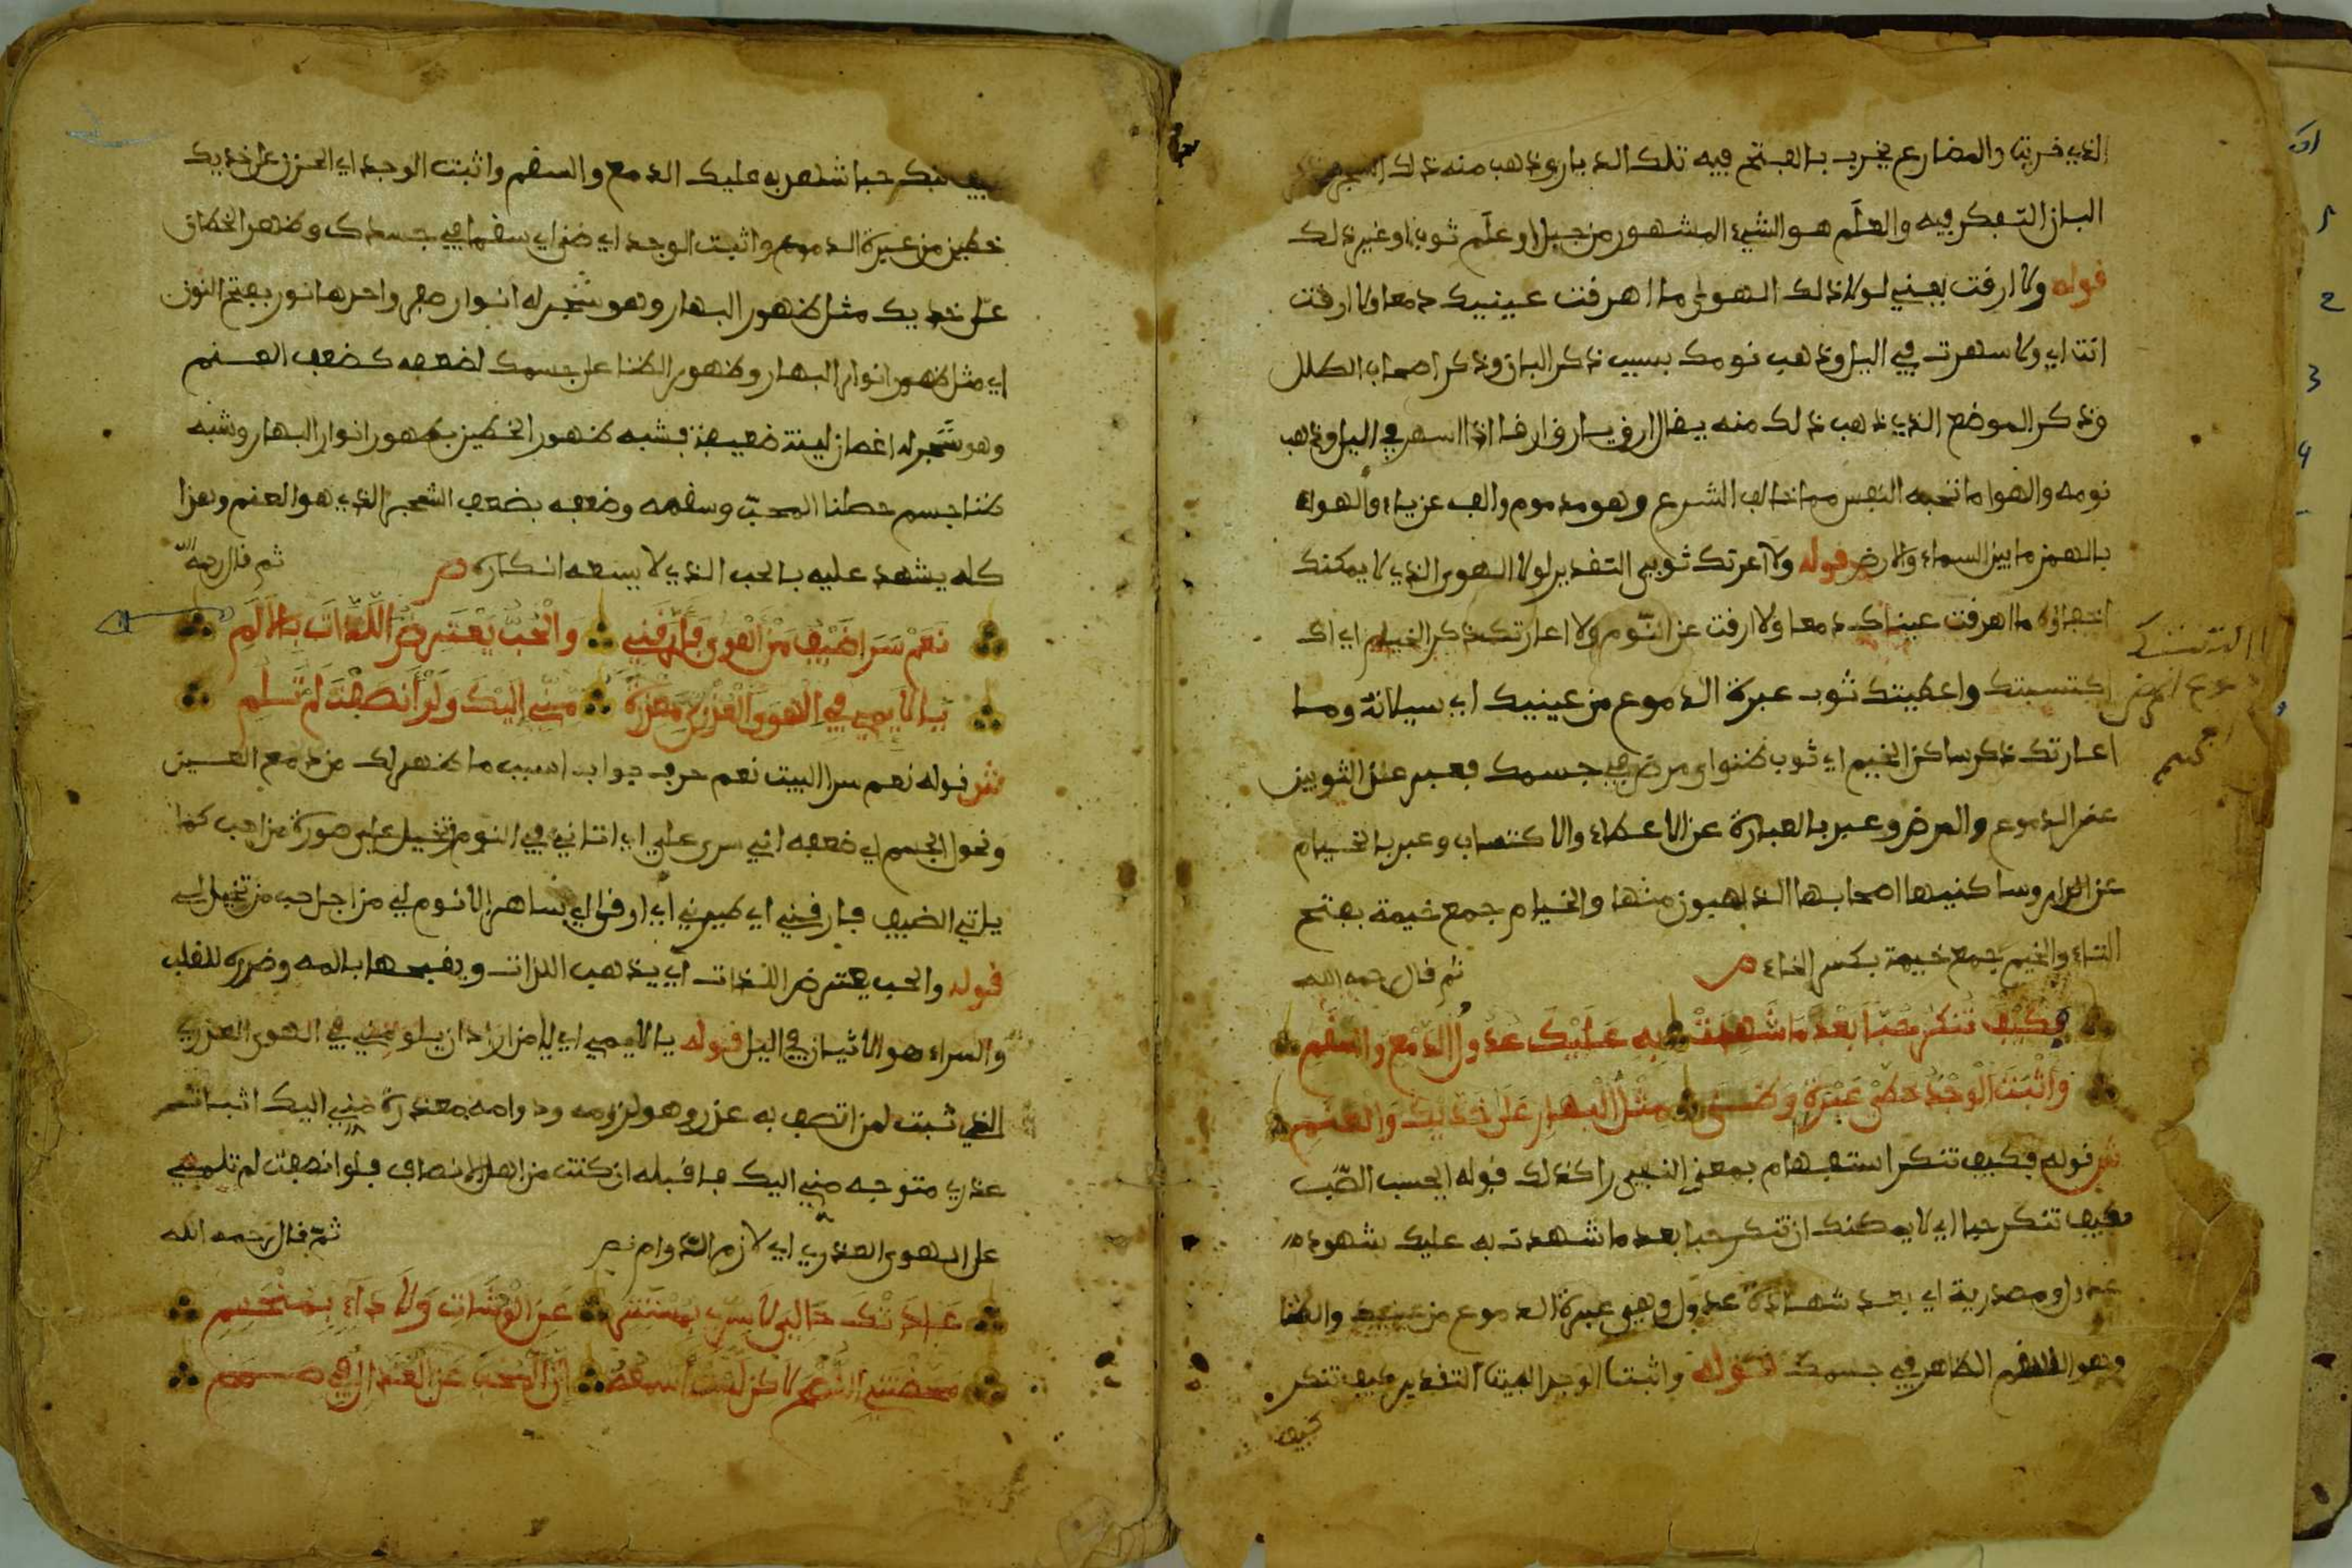 الذي خربت والمضارع يخرب بالفتح فيه تلك الديار وذهب منه ذلك
البان التفكر فيه والعلَم هو الشيء المشهور من جبل او علَم ثوب او غير ذلك
قوله ولا ارقت يعني لولا ذلك الهوى ما اهرقت عينيك دمعا ولا ارقت
انت اي ولا سهرت في اليل وذهب نومك بسبب ذكر البان وذكر اصحاب الطلل
وذكر الموضع الذي ذهب ذلك منه يقال ارق يارق ارقا اذا اسهر في اليل وذهب
نومه والهوا ما تحبه النفس مما خالف الشرع وهو مذموم والف عن ياء والهواء
بالهمز ما بين السماء والارض قوله ولا اعرتك ثوبي التقدير لولا الهوى الذي لا يمكنك
اخفاؤه ما اهرقت عيناك دمعا ولا ارقت عن النّوم ولا اعارتك ذكر الخيام اي اك
اكتسبتك واعطيتك ثوب عبرة الدموع من عينيك اي سيلانه وما
اعارتك ذكر ساكن الخيم اي ثوب ظنوا ومرض في جسمك فعبر عن الثوبين
عن الدموع والمرض وعبر بالعبارة عن الاعطاء والاكتساب وعبر بالخيام
عن الدار وساكنيها اصحابها الذاهبون منها والخيام جمع خيمة بفتح
التاء والخيم جمع خيمة بكسر الخاء ص ثم قال رحمه الله
فكَيْفَ تُنكرُ حُبّاً بَعْدَ مَا شَّهِدتْ به عَلَيْكَ عدُولُ الدَّمْعِ والسَّقَمِ
وَأَثْبَتَ الْوَجْدُ خطَّيْ عَبْرَةٍ وَضَنًى مثْلَ الْبَهَارِ عَلَى خَدَّيْكَ وَالْعَنَمِ
ش قوله فكيف تنكر استفهام بمعنى النفي وكذلك قوله ايحسب الصّب
فكيف تنكر حبا اي لا يمكنك ان تنكر حبا بعد ما شهدت به عليك شهود
عدول ومصدرية اي بعد شهادة عدول وهي عبرة الدموع من عينيك والظنا
وهو السقم الظاهر في جسمك قوله واثبتا الوجد البيتا التقدير كيف تنكر
كيف
فكيف تنكر حبا شهد به عليك الدمع والسقم واثبت الوجد اي الحزن على خديك
خطين من عبرة الدموع واثبت الوجد اي ضنى اي سقما في جسدك وظهر الخطان
على خديك مثل ظهور البهار وهو شجر له انوار صفر واحدها نور بفتح النون
اي مثل ظهور انوار البهار وظهور الظنا على جسمك لضعفه كضعف العنم
وهو شجر له اغصان لينة ضعيفة فشبه ظهور الخطين بظهور انوار البهار وشبه
ظنا جسم المحبّ وسقمه وضعفه بضعف الشجر الذي هو العنم وهذا
كله يشهد عليه بالحب الذي لا يسعه انكاره ص ثم قال رحمه الله
نَعَمْ سَرَا طَيْفُ مَنْ أَهْوَى فَأَرَّقَنِي وَالْحُبُّ يَعْتَرِضُ اللَّذَّاتَ بِالْأَلَمِ
يَا لَائِمِي فِي الْهَوَى الْعُذْرِيِّ مَعْذِرَةً مِنِّي إِلَيْكَ وَلَوْ أَنصَفْتَ لَمْ تَلُمِ
ش قوله نعم سرا البيت نعم حرف جواب اسبب ما ظهر لك من دمع العين
ونحول الجسم اي ضعفه اني سرى علي اي اتاني في النوم تخيل على صورة من احب كما
ياتي الضيف فارقني اي طيرني اي ارقني اي ساهر الا نوم لي من اجل حب من تخيل لي
قوله والحب يعترض اللذات اي يذهب اللذات ويقبحها بالمه وضرره للقلب
والسراء هو الاتيان في اليل قوله يا لايمي اي يا من اراد ان يلومني في الهوى العذري
الذي ثبت لمن اتصف به عذر وهو لزومه ودوامه معذرة مني اليك اثباتم
عذري متوجه مني اليك فاقبله ان كنت من اهل الانصاف فلو انصفت لم تلمني
على الهوى العذري اي لازم الدوام ص ثمّ قال رحمه الله
عَدَتْكَ حَالِيَ لَا سِرِّي بِمُسْتَتِرٍ عَنِ الْوُشَاتِ وَلَا دَاءِ بِمُنْحَسِمِ
مَحَضْتَنِي النُّصْحَ لَاكِن لَّسْتُ أَسْمَعُهُ إِنَّ الْمُحِبَّ عَنِ الْعُذَّالِ فِي صَمَمِ